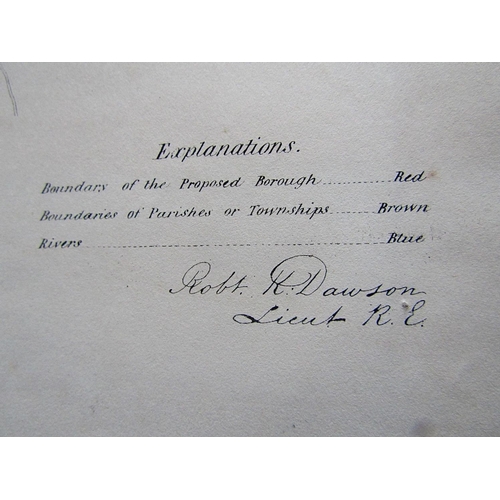 Explanations.
Boundary of the Proposed Borough Red
Boundaries of Parishes or Townships Brown
Rivers Blue
Robt. K. Dawson
Lieut R.E.